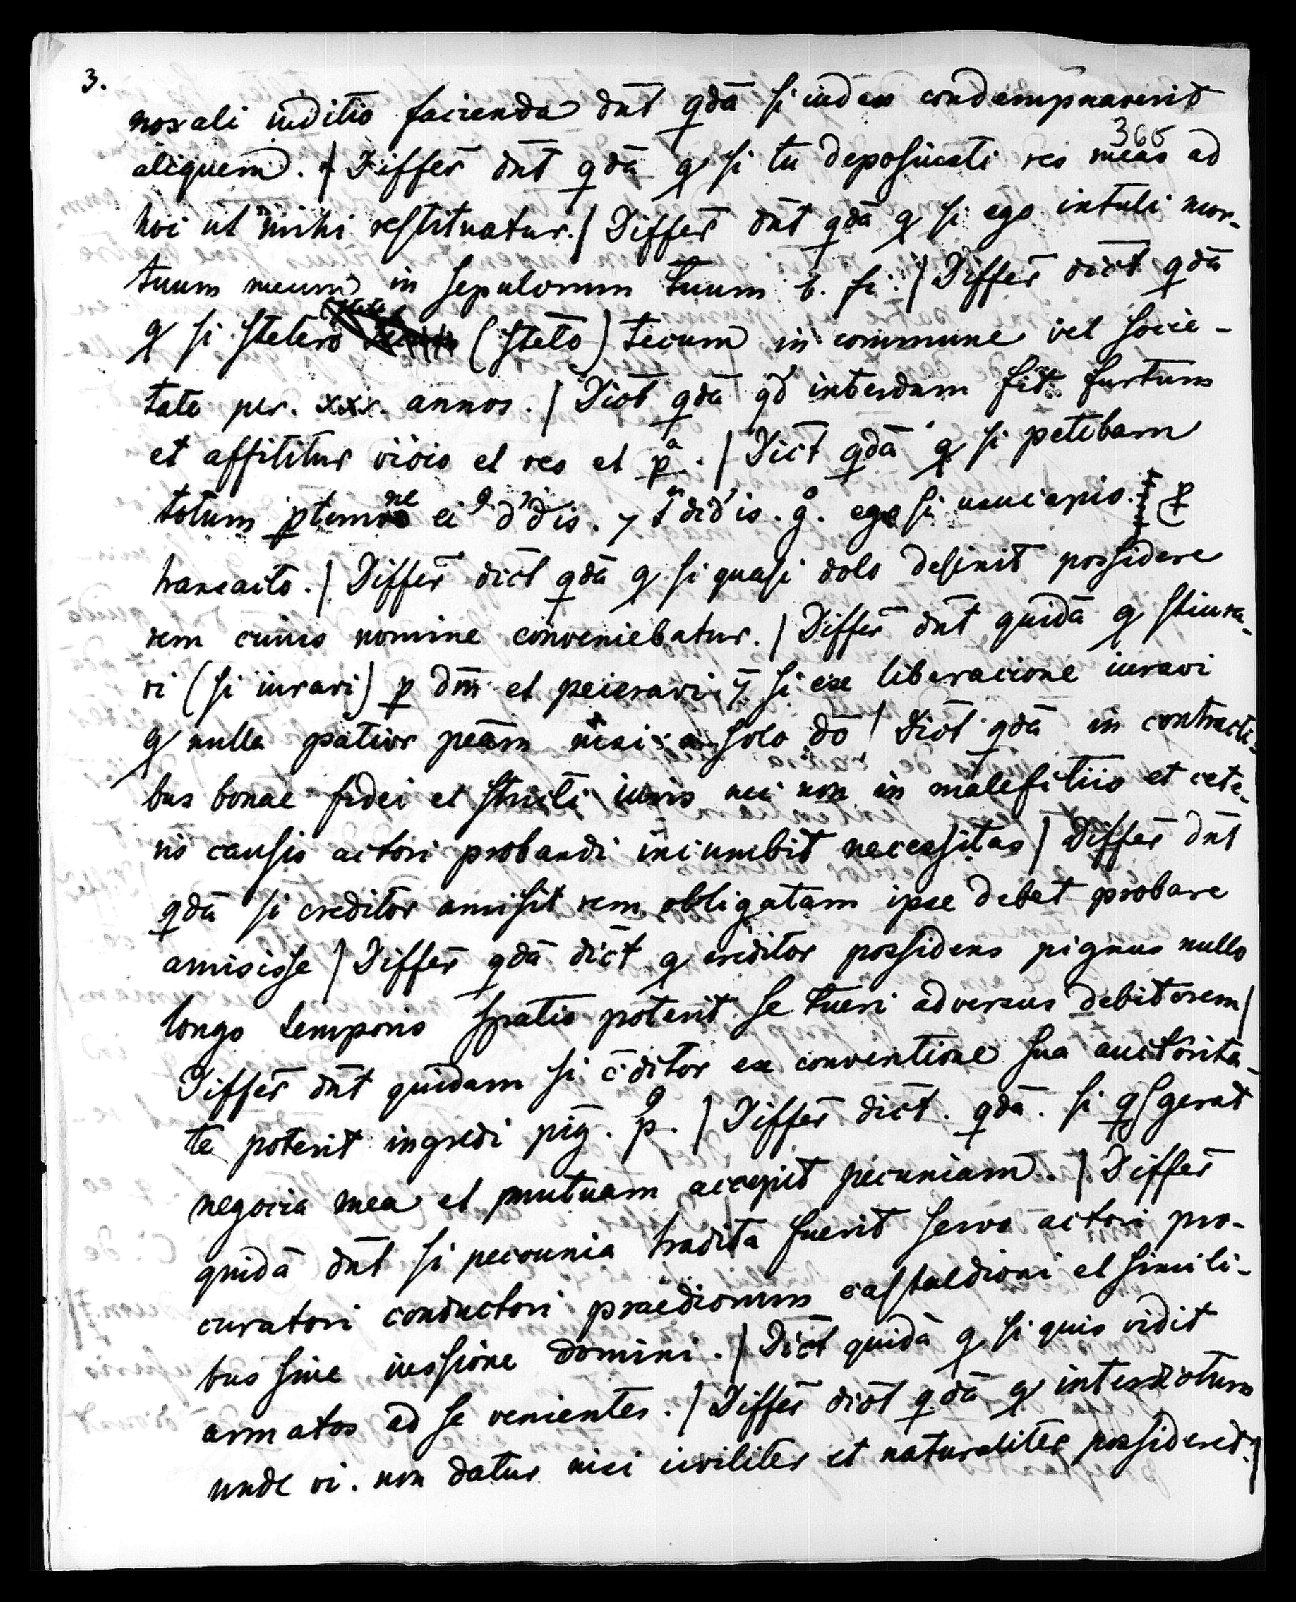 3.
noxali iuditio facienda dn̄t qdā si iudex condempnaverit
365
aliquem. / Differ̄ dn̄t qdā q si tu deposuisti res meas ad
hoc ut mihi restituatur. / Differ̄ dn̄t qdā q si ego intuli mor-
tuum meum in sepulcrum tuum b. fi. / Differ̄ dic̄t qdā
q si stetero (steto) tecum in commune vel socie-
tate per. xxx. annos. / Dic̄t qdā qd interdum fit furtum
et affititur viois et res et p. / Dict qdā q si petebam
totum ptem ei d'dis. 7 t did'is. g. ego si usucapio. p
transacto. / Differ̄ dict qdā q si quasi dolo desinit possidere
rem cuius nomine conveniebatur. / Differ̄ dn̄t quidā q stiura-
vi (si iuravi) p dm̄ et peieravi. 7 si ex liberacione iuravi
q nulla patior peām nisi a solo dō / Dic̄t qdā in contracti-
bus bonae fidei et stricti iuris nec non in malefitiis et cete-
ris causis actori probandi incumbit necessitas / Differ̄ dn̄t
qdā si creditor amisit rem obligatam ipse debet probare
amisisse / Differ̄ qdā dic̄t q creditor possidens pignus nullo
longo temporis spatio poterit se tueri adversus debitorem /
Differ̄ dn̄t quidam si c̄ditor ex conventione sua auctorita-
te poterit ingredi piḡ. p. / Differ̄ dic̄t. qdā. si q gerat
negocia mea et mutuam accepit pecuniam. / Differ̄
quidā dn̄t si pecounia tradita fuerit servo actori pro-
curatori conductori praediorum castaldioni et simili-
bus sine iussione domini. / Dic̄t quidā q si quis vidit
armatos ad se venientes. / Differ̄ dic̄t qdā q interdictum
unde vi. non datur nisi civiliter et naturaliter possideret. /